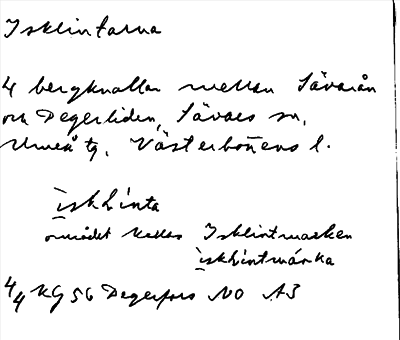 Isklintarna
4 bergknallar mellan Sävarån
och Degerliden, Sävars sn,
Umeå tg, Västerbottens l.
ìskLinta
området kallas Isklintmarken
ìskLintmárka
4/4 KG 56 Degerfors NO A3